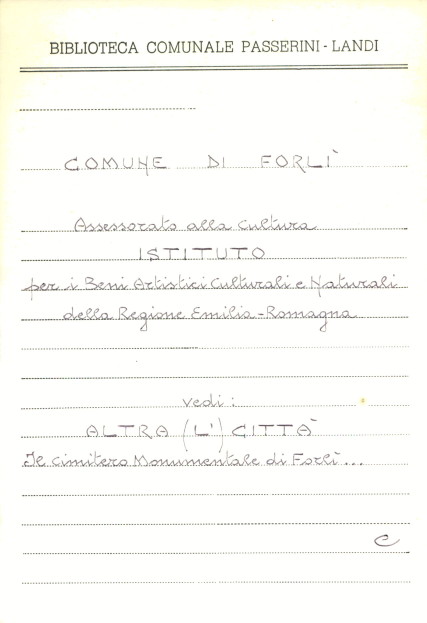 BIBLIOTECA COMUNALE PASSERINI - LANDI
COMUNE DI FORLÌ
Assessorato alla Cultura
ISTITUTO
per i Beni Artistici Culturali e Naturali
della Regione Emilia-Romagna
vedi:
ALTRA (L') CITTÀ
Il cimitero Monumentale di Forlì...
C